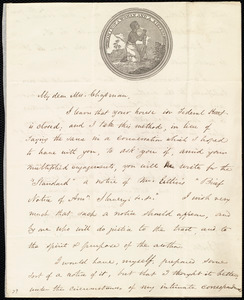 My dear Mrs. Chapman,
I learn that your house in Federal Street
is closed, and I take this method, in lieu of
saying the same in a conversation which I hoped
to have with you, to ask you if, amid your
multiplied engagements, you will write for the
"Standard" a notice of "Brief
Notice of Amn. Slavery". I wish very
much that such a notice should appear, and
by one who will do justice to the tract, and to
the spirit & purpose of the author.
I would have, myself, prepared some
sort of a notice of it, but that I thought it better
under the circumstances of my intimate correspondence